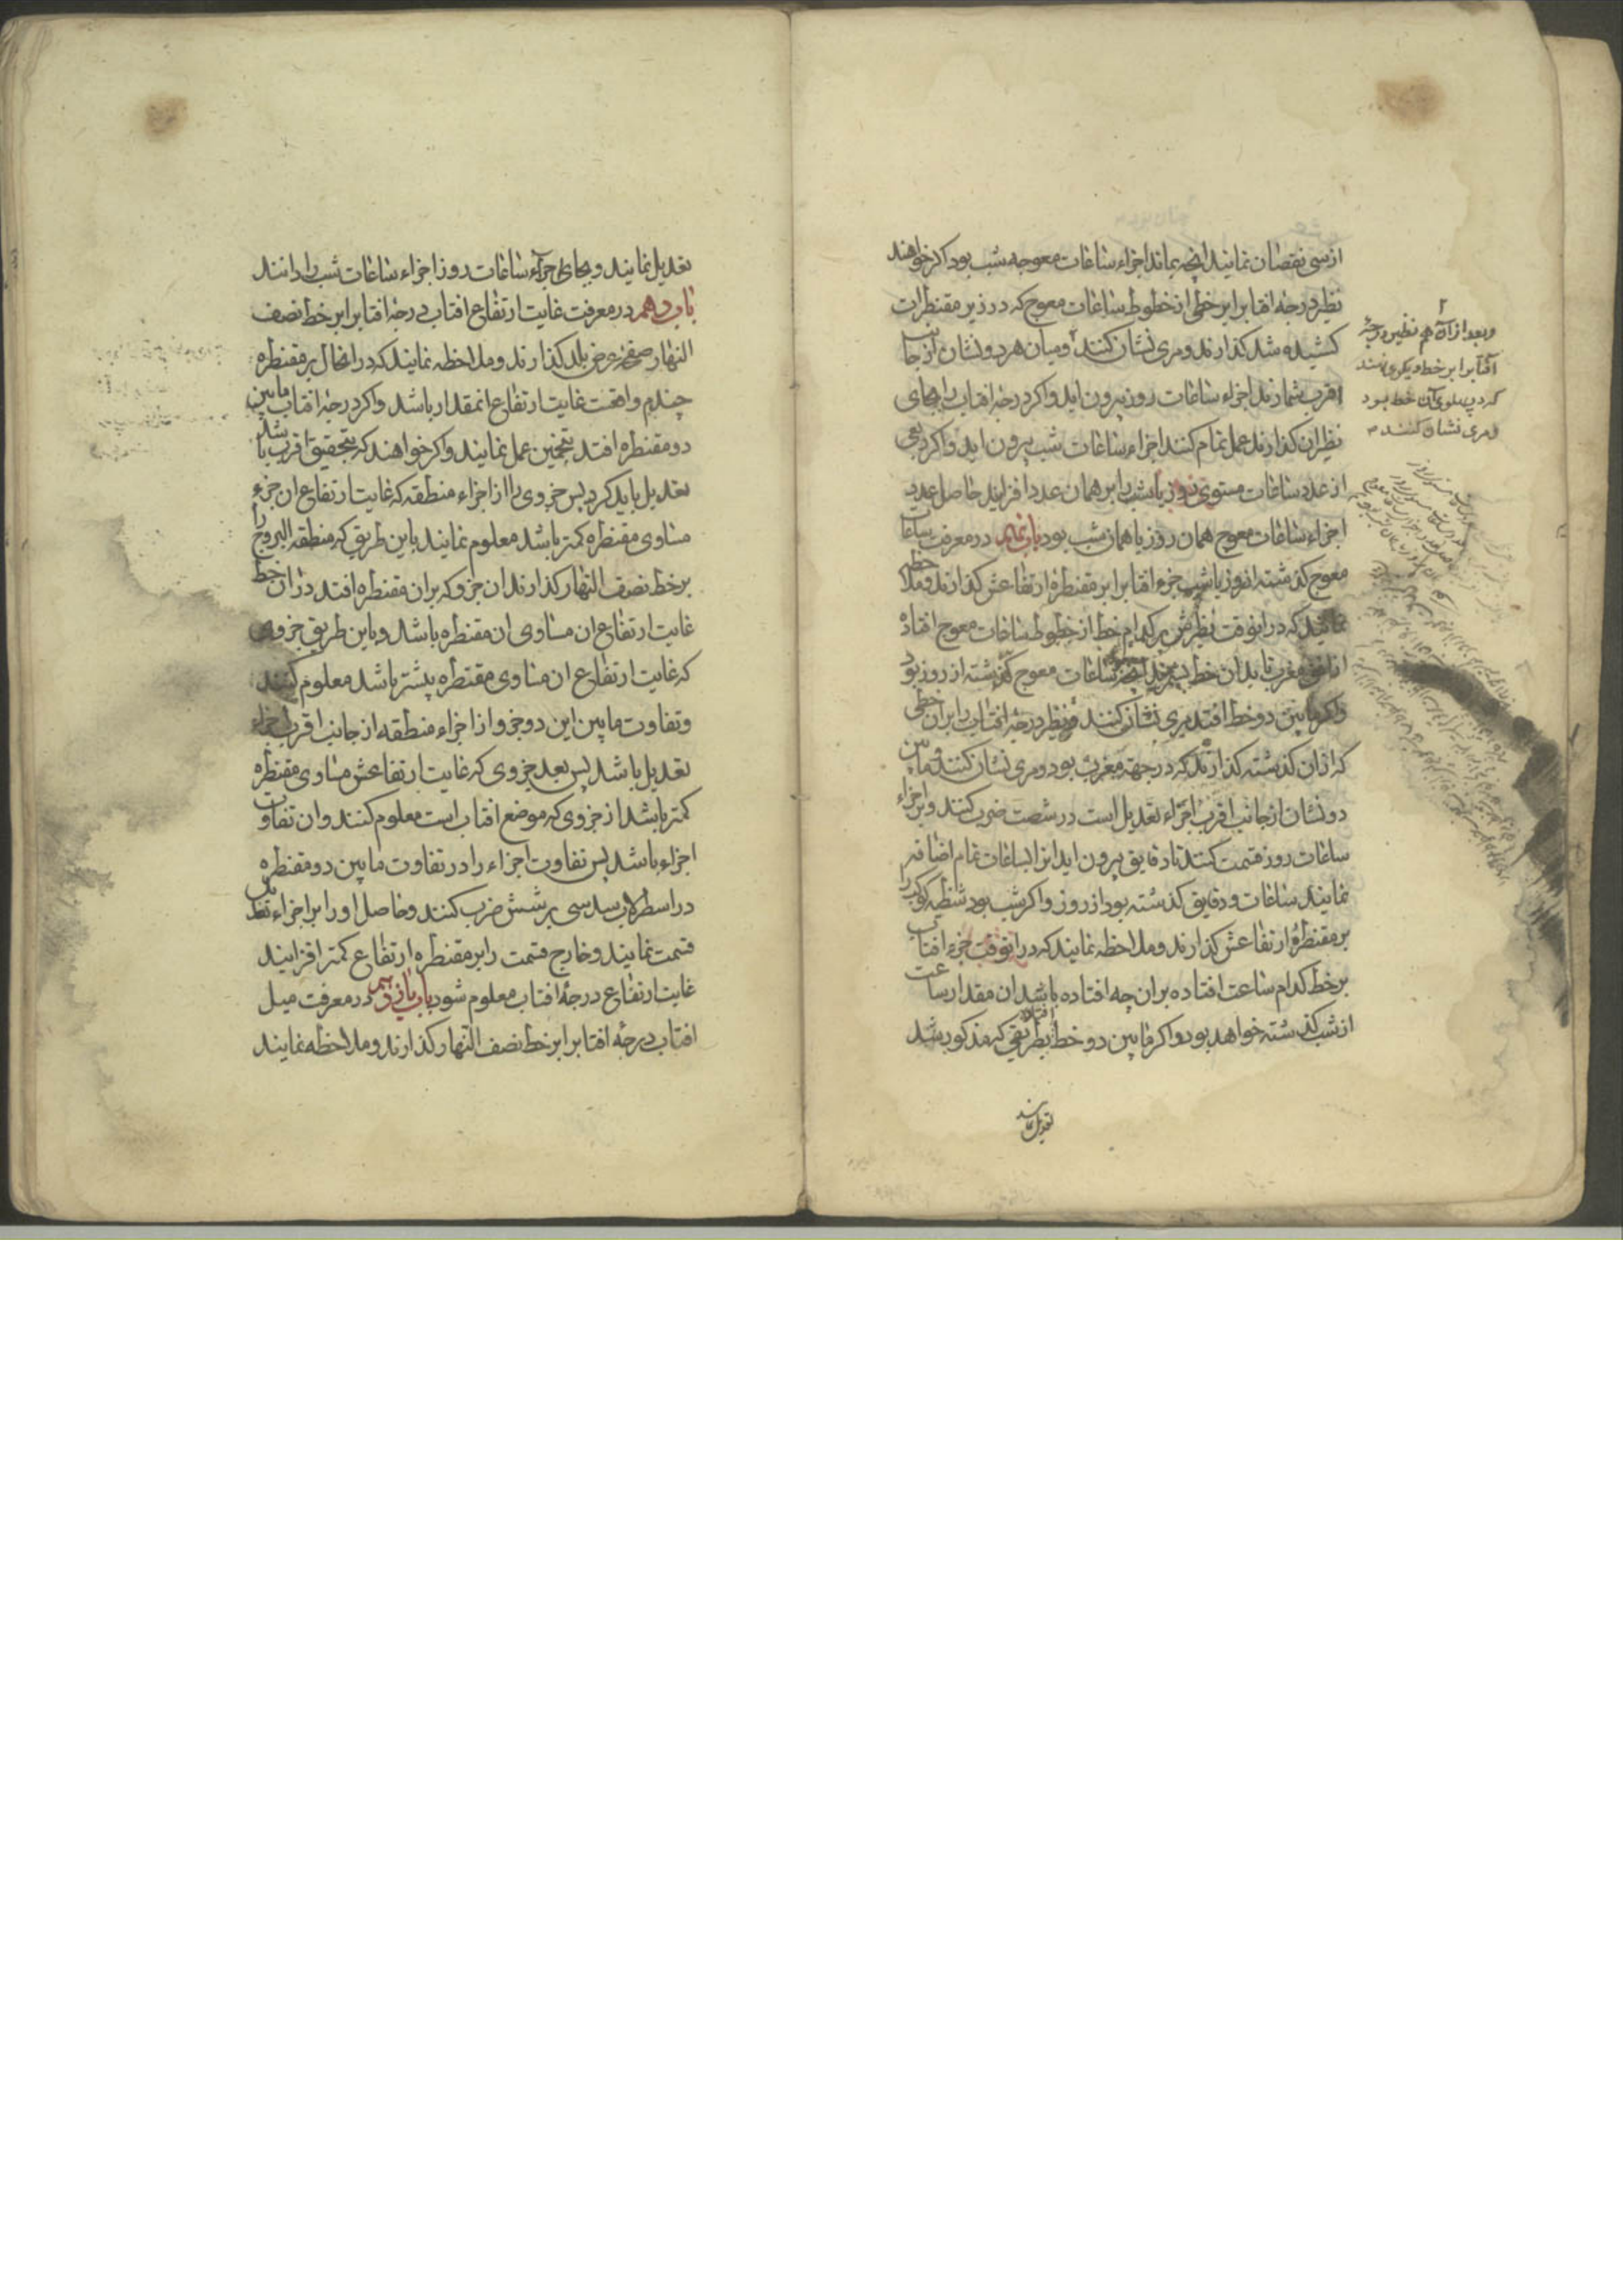 از سی نقصان نمایند انچه بماند اجزاء ساعات معوجه شب بود اکر خواهند
نظیر درجه افتابرا بر خطی از خطوط ساعات معوج که در زیر مقنطرات
کشیده شد کذارند و مری نشان کنند و میان هر دو نشان از جانب
اقرب شمارند اجزاء ساعات روز بیرون اید و اکر درجهٔ افتاب را بجای
نظیر ان کذارند و عمل تمام کنند اجزاء ساعات شب بیرون اید و اکر ربعی
از عدد ساعات مستوی روز یا شب را بر همان عدد افزایند حاصل عدد
اجزاء ساعات معوج همان روز یا همان شب بود باب نهم در معرفت ساعات
معوج کذشته از روز یا شب جزء افتابرا بر مقنطرهٔ ارتفاعش کذارند و ملاحظه
نمایند که در انوقت نظیرش بر کدام خط از خطوط ساعات معوج افتاده
از افق مغرب تا بدان خط بشمرند انچه ساعات معوج کذشته از روز بود
و اکر مابین دو خط افتد مری نشان کنند و نظیر درجهٔ افتاب را بران خطی
که ازان کذشته کذارند که در جهة مغرب بود و مری نشان کنند و مابین
دو نشان از جانب اقرب اجزاء تعدیل است در شصت ضرب کنند و بر اجزاء
ساعات روز قسمت کنند تا دقایق بیرون اید انرا با ساعات تمام اضافه
نمایند ساعات و دقایق کذشته بود از روز و اکر شب بود شظیه کوکب را
بر مقنطرهٔ ارتفاعش کذارند و ملاحظه نمایند که در انوقت جزء افتاب
بر خط کدام ساعت افتاده بران چه افتاده باشد ان مقدار ساعت
از شب کذشته خواهد بود و اکر مابین دو خط افتاده بطریقی که مذکور شد
تعدیل نمایند
و بعد ازان هم نظیر درجهٔ
آفتابرا بر خط دیکری نهند
که در پهلوی آن خط بود
و مری نشان کنند
تعدیل نمایند و بجای اجزاء ساعات روز اجزاء ساعات شب را دانند
باب دهم در معرفت غایت ارتفاع افتاب درجهٔ افتابرا بر خط نصف
النهار صفحهٔ عرض بلد کذارند و ملاحظه نمایند که در انحال بر مقنطره
چندم واقعست غایت ارتفاع انمقدار باشد و اکر درجهٔ افتاب مابین
دو مقنطره افتد بتخمین عمل نمایند و اکر خواهند که بتحقیق اقرب باشد
تعدیل باید کرد پس جزوی را از اجزاء منطقه که غایت ارتفاع ان جزء
مساوی مقنطره کمتر باشد معلوم نمایند باین طریق که منطقة البروج را
بر خط نصف النهار کذارند ان جزو که بران مقنطره افتد دران خط
غایت ارتفاع ان مساوی ان مقنطره باشد و باین طریق جزوی
که غایت ارتفاع ان مساوی مقنطره بیشتر باشد معلوم کنند
و تفاوت مابین این دو جزو از اجزاء منطقه از جانب اقرب اجزاء
تعدیل باشد پس بعد جزوی که غایت ارتفاعش مساوی مقنطره
کمتر باشد از جزوی که موضع افتاب است معلوم کنند و ان تفاوت
اجزاء باشد پس تفاوت اجزاء را در تفاوت مابین دو مقنطره
در اسطرلاب سدسی بر شش ضرب کنند و حاصل او را بر اجزاء تعدیل
قسمت نمایند و خارج قسمت را بر مقنطره ارتفاع کمتر افزایند
غایت ارتفاع درجهٔ افتاب معلوم شود باب یازدهم در معرفت میل
افتاب درجهٔ افتابرا بر خط نصف النهار کذارند و ملاحظه نمایند